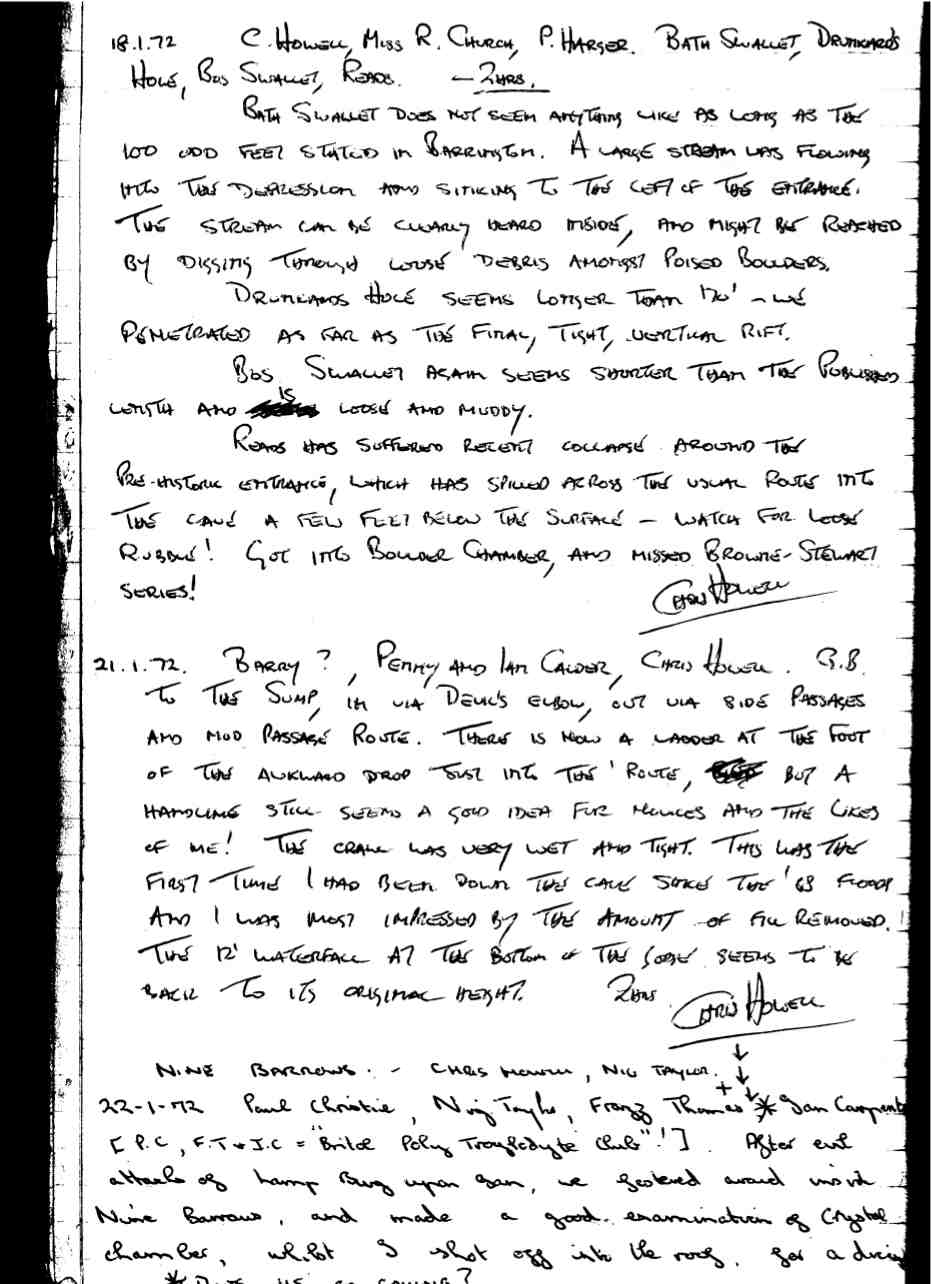 18.1.72 C. HOWELL, MISS R. CHURCH, P. HARGER. BATH SWALLET, DRUNKARDS
HOLE, BOS SWALLET, READS. — 2HRS.
BATH SWALLET DOES NOT SEEM ANYTHING LIKE AS LONG AS THE
100 ODD FEET STATED IN BARRINGTON. A LARGE STREAM WAS FLOWING
INTO THE DEPRESSION AND SINKING TO THE LEFT OF THE ENTRANCE.
THE STREAM CAN BE CLEARLY HEARD INSIDE, AND MIGHT BE REACHED
BY DIGGING THROUGH LOOSE DEBRIS AMONGST POISED BOULDERS.
DRUNKARDS HOLE SEEMS LONGER THAN 120' – WE
PENETRATED AS FAR AS THE FINAL, TIGHT, VERTICAL RIFT.
BOS SWALLET AGAIN SEEMS SHORTER THAN THE PUBLISHED
LENGTH AND IS LOOSE AND MUDDY.
READS HAS SUFFERED RECENT COLLAPSE AROUND THE
PRE-HISTORIC ENTRANCE, WHICH HAS SPILLED ACROSS THE USUAL ROUTE INTO
THE CAVE A FEW FEET BELOW THE SURFACE – WATCH FOR LOOSE
RUBBLE! GOT INTO BOULDER CHAMBER, AND MISSED BROWNE-STEWART
SERIES!
CHRIS HOWELL
21.1.72. BARRY ?, PENNY AND IAN CALDER, CHRIS HOWELL. G.B.
TO THE SUMP, IN VIA DEVIL'S ELBOW, OUT VIA SIDE PASSAGES
AND MUD PASSAGE ROUTE. THERE IS NOW A LADDER AT THE FOOT
OF THE AWKWARD DROP JUST INTO THE ROUTE, BUT A
HANDLINE STILL SEEMS A GOOD IDEA FOR NOVICES AND THE LIKES
OF ME! THE CRAWL WAS VERY WET AND TIGHT. THIS WAS THE
FIRST TIME I HAD BEEN DOWN THE CAVE SINCE THE '68 FLOODS
AND I WAS MOST IMPRESSED BY THE AMOUNT OF FILL REMOVED!
THE 12' WATERFALL AT THE BOTTOM OF THE GORGE SEEMS TO BE
BACK TO ITS ORIGINAL HEIGHT. 2HRS
CHRIS HOWELL
NINE BARROWS. – CHRIS HOWELL, NIG TAYLOR.
22-1-72 Paul Christie, Nig Taylor, Franz Thomas + * Ian Carpent
[P.C, F.T + J.C = "Bristol Poly Troglodyte Club"!] After evil
attacks of Lamp Bug upon Ian, we footered around inside
Nine Barrows, and made a good examination of Crystal
chamber, whilst I shot off into the roof, for a
* DOES HE GO CAVING?